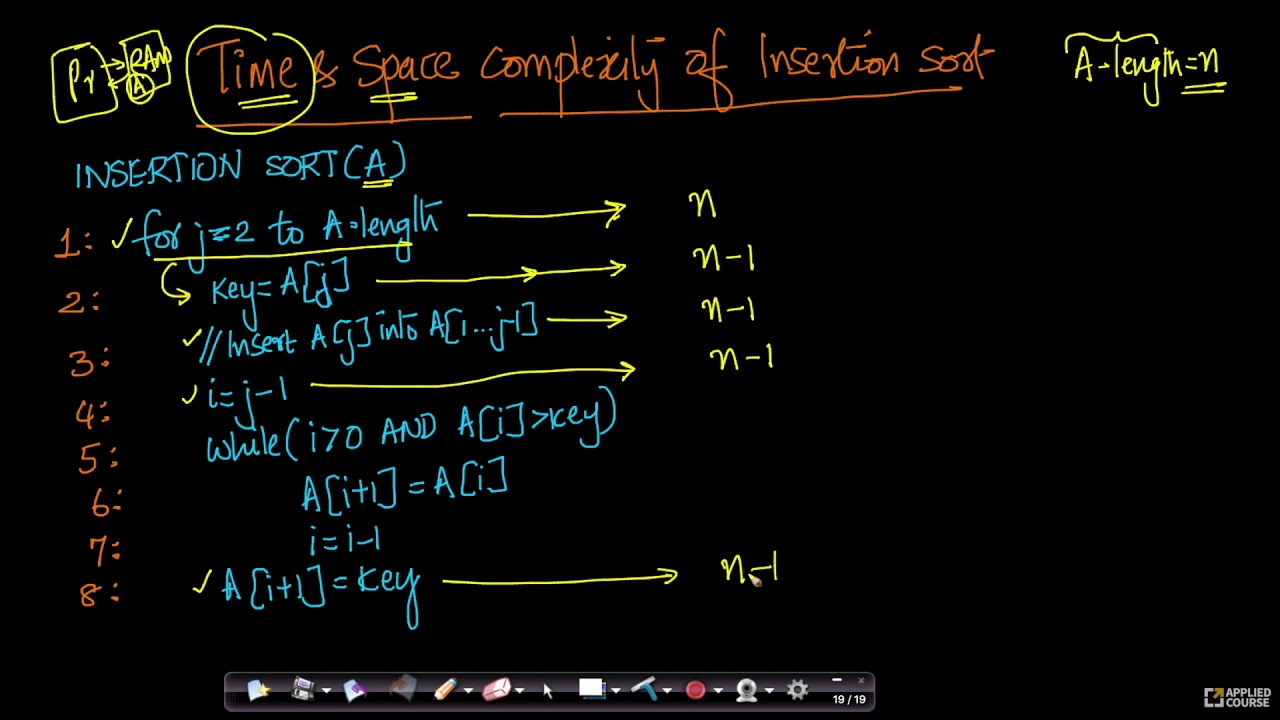 Pr RAM A
Time & Space complexity of Insertion sort
A.length=n
INSERTION SORT(A)
1: ✓ for j=2 to A.length → n
2: key=A[j] → n-1
3: ✓ //Insert A[j] into A[1...j-1] → n-1
4: ✓ i=j-1 → n-1
5: while(i>0 AND A[i]>key)
6: A[i+1]=A[i]
7: i=i-1
8: ✓ A[i+1]=key → n-1
19 / 19
APPLIED
COURSE